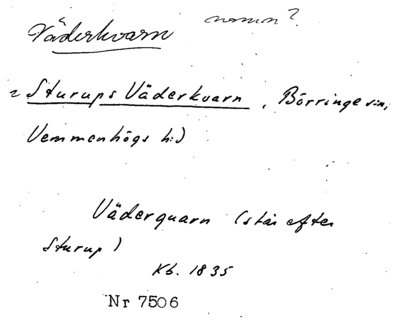 Väderkvarn numen?
= Sturups Väderkvarn, Börringe sn,
Vemmenhögs hd
Väderquarn (står efter
Sturup)
Kb. 1835
Nr 7506